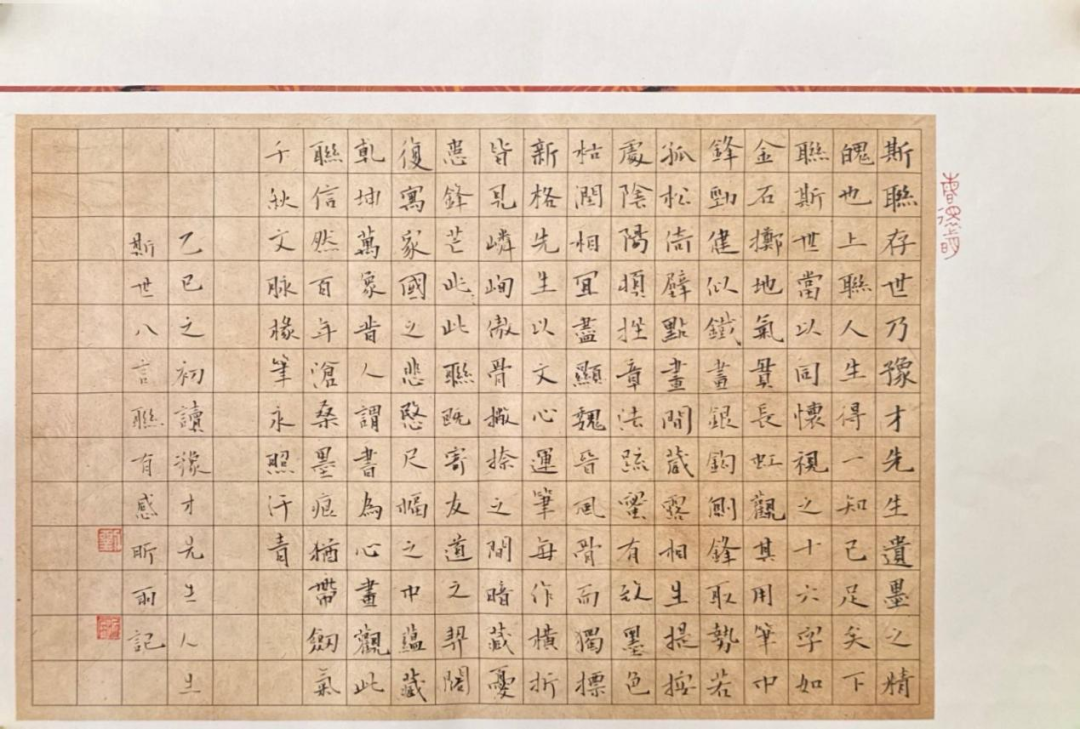 斯聯存世乃豫才先生遺墨之精
魄也上聯人生得一知己足矣下
聯斯世當以同懷視之十六字如
金石擲地氣貫長虹觀其用筆巾
鋒勁健似鐵畫銀鉤側鋒取勢若
孤松倚壁點畫間藏露相生提按
處陰陽頓挫章法疏蜜有致墨色
枯潤相宜盡顯魏晉風骨而獨標
新格先生以文心運筆每作橫折
皆見嶙峋傲骨撇捺之間暗藏憂
患鋒芒此此聯既寄友道之契闊
復寓家國之悲愍尺幅之巾蘊藏
乾坤萬象昔人謂書為心畫觀此
聯信然百年滄桑墨痕猶帶劍氣
千秋文脉椽筆永照汗青
乙巳之初讀豫才先生人生
斯世八言聯有感昕雨記